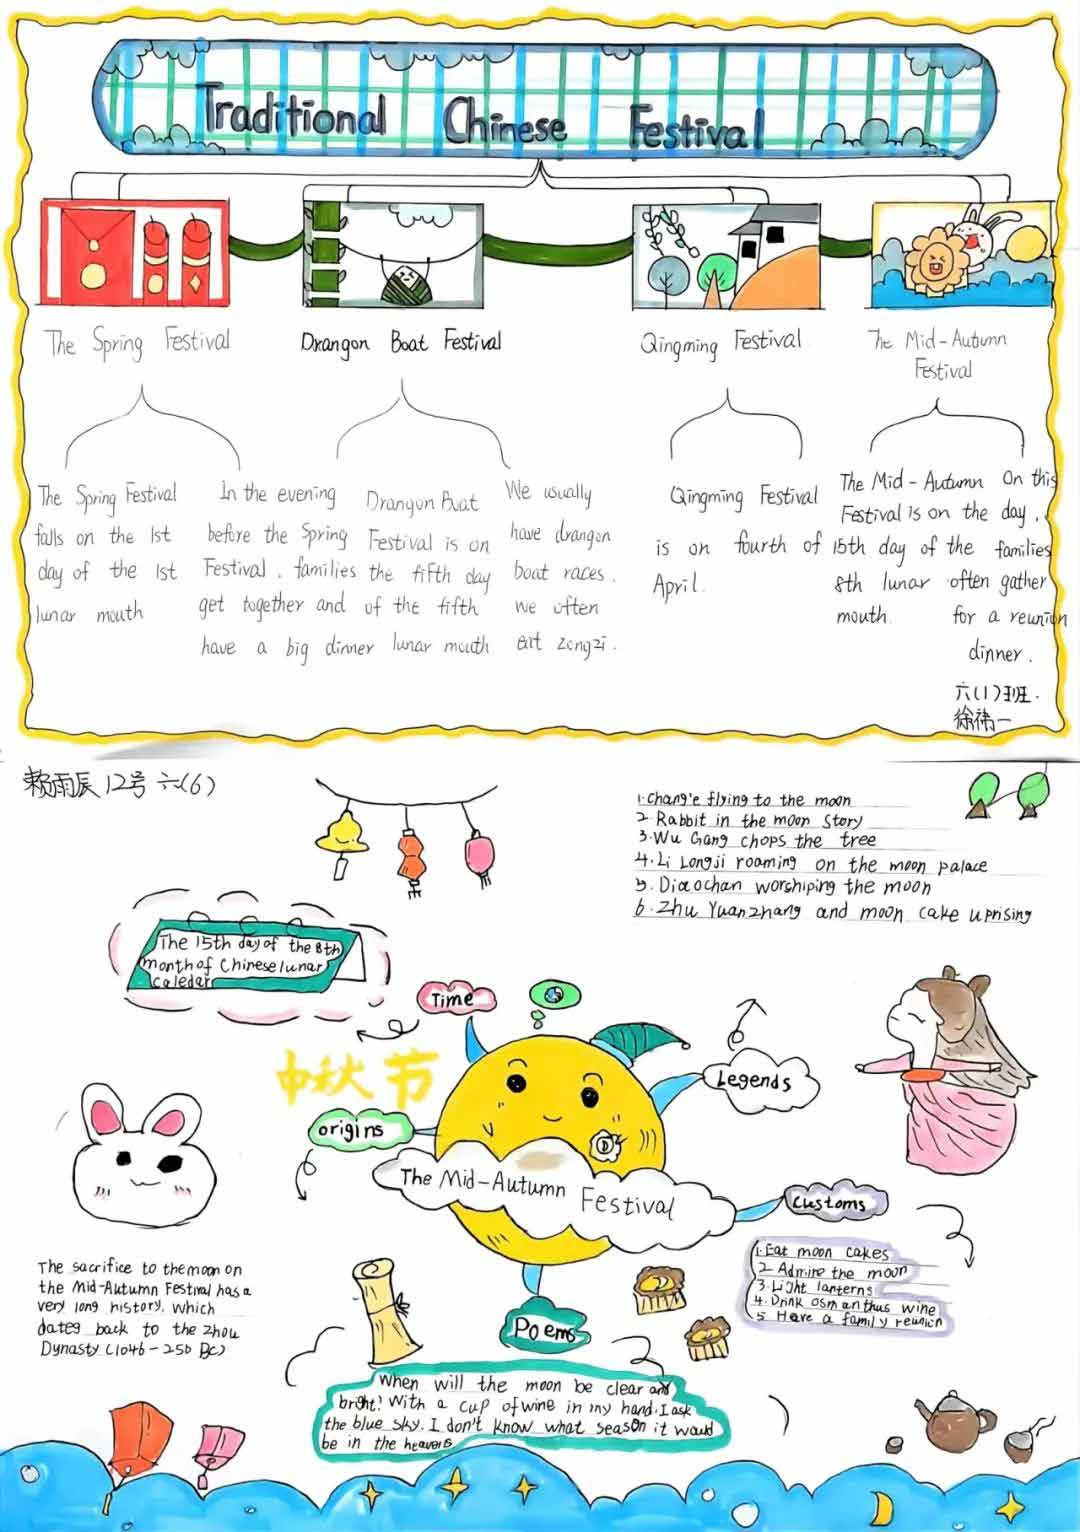 Traditional Chinese Festival
The Spring Festival
Drangon Boat Festival
Qingming Festival
The Mid-Autumn
Festival
The Spring Festival
falls on the 1st
day of the 1st
lunar mouth
In the evening
before the Spring
Festival, families
get together and
have a big dinner
Drangon Boat
Festival is on
the fifth day
of the fifth
lunar mouth
We usually
have drangon
boat races.
we often
eat zongzi.
Qingming Festival
is on fourth of
April.
The Mid-Autumn
Festival is on the
15th day of the
8th lunar
mouth.
On this
day,
families
often gather
for a reunion
dinner.
六(1)班.
徐祎一
赖雨辰 12号 六(6)
1.Chang'e flying to the moon
2.Rabbit in the moon story
3.Wu Gang chops the tree
4.Li Longji roaming on the moon palace
5.Diaochan worshiping the moon
6.Zhu Yuanzhang and moon cake uprising
The 15th day of the 8th
month of Chinese lunar
caledar
Time
中秋节
Legends
origins
The Mid-Autumn Festival
customs
1.Eat moon cakes
2.Admire the moon
3.Light lanterns
4.Drink osmanthus wine
5 Have a family reunion
The sacrifice to the moon on
the Mid-Autumn Festival has a
very long history. which
dates back to the Zhou
Dynasty (1046-256 BC)
Poems
When will the moon be clear and
bright? With a cup of wine in my hand, I ask
the blue sky. I don't know what season it would
be in the heavens